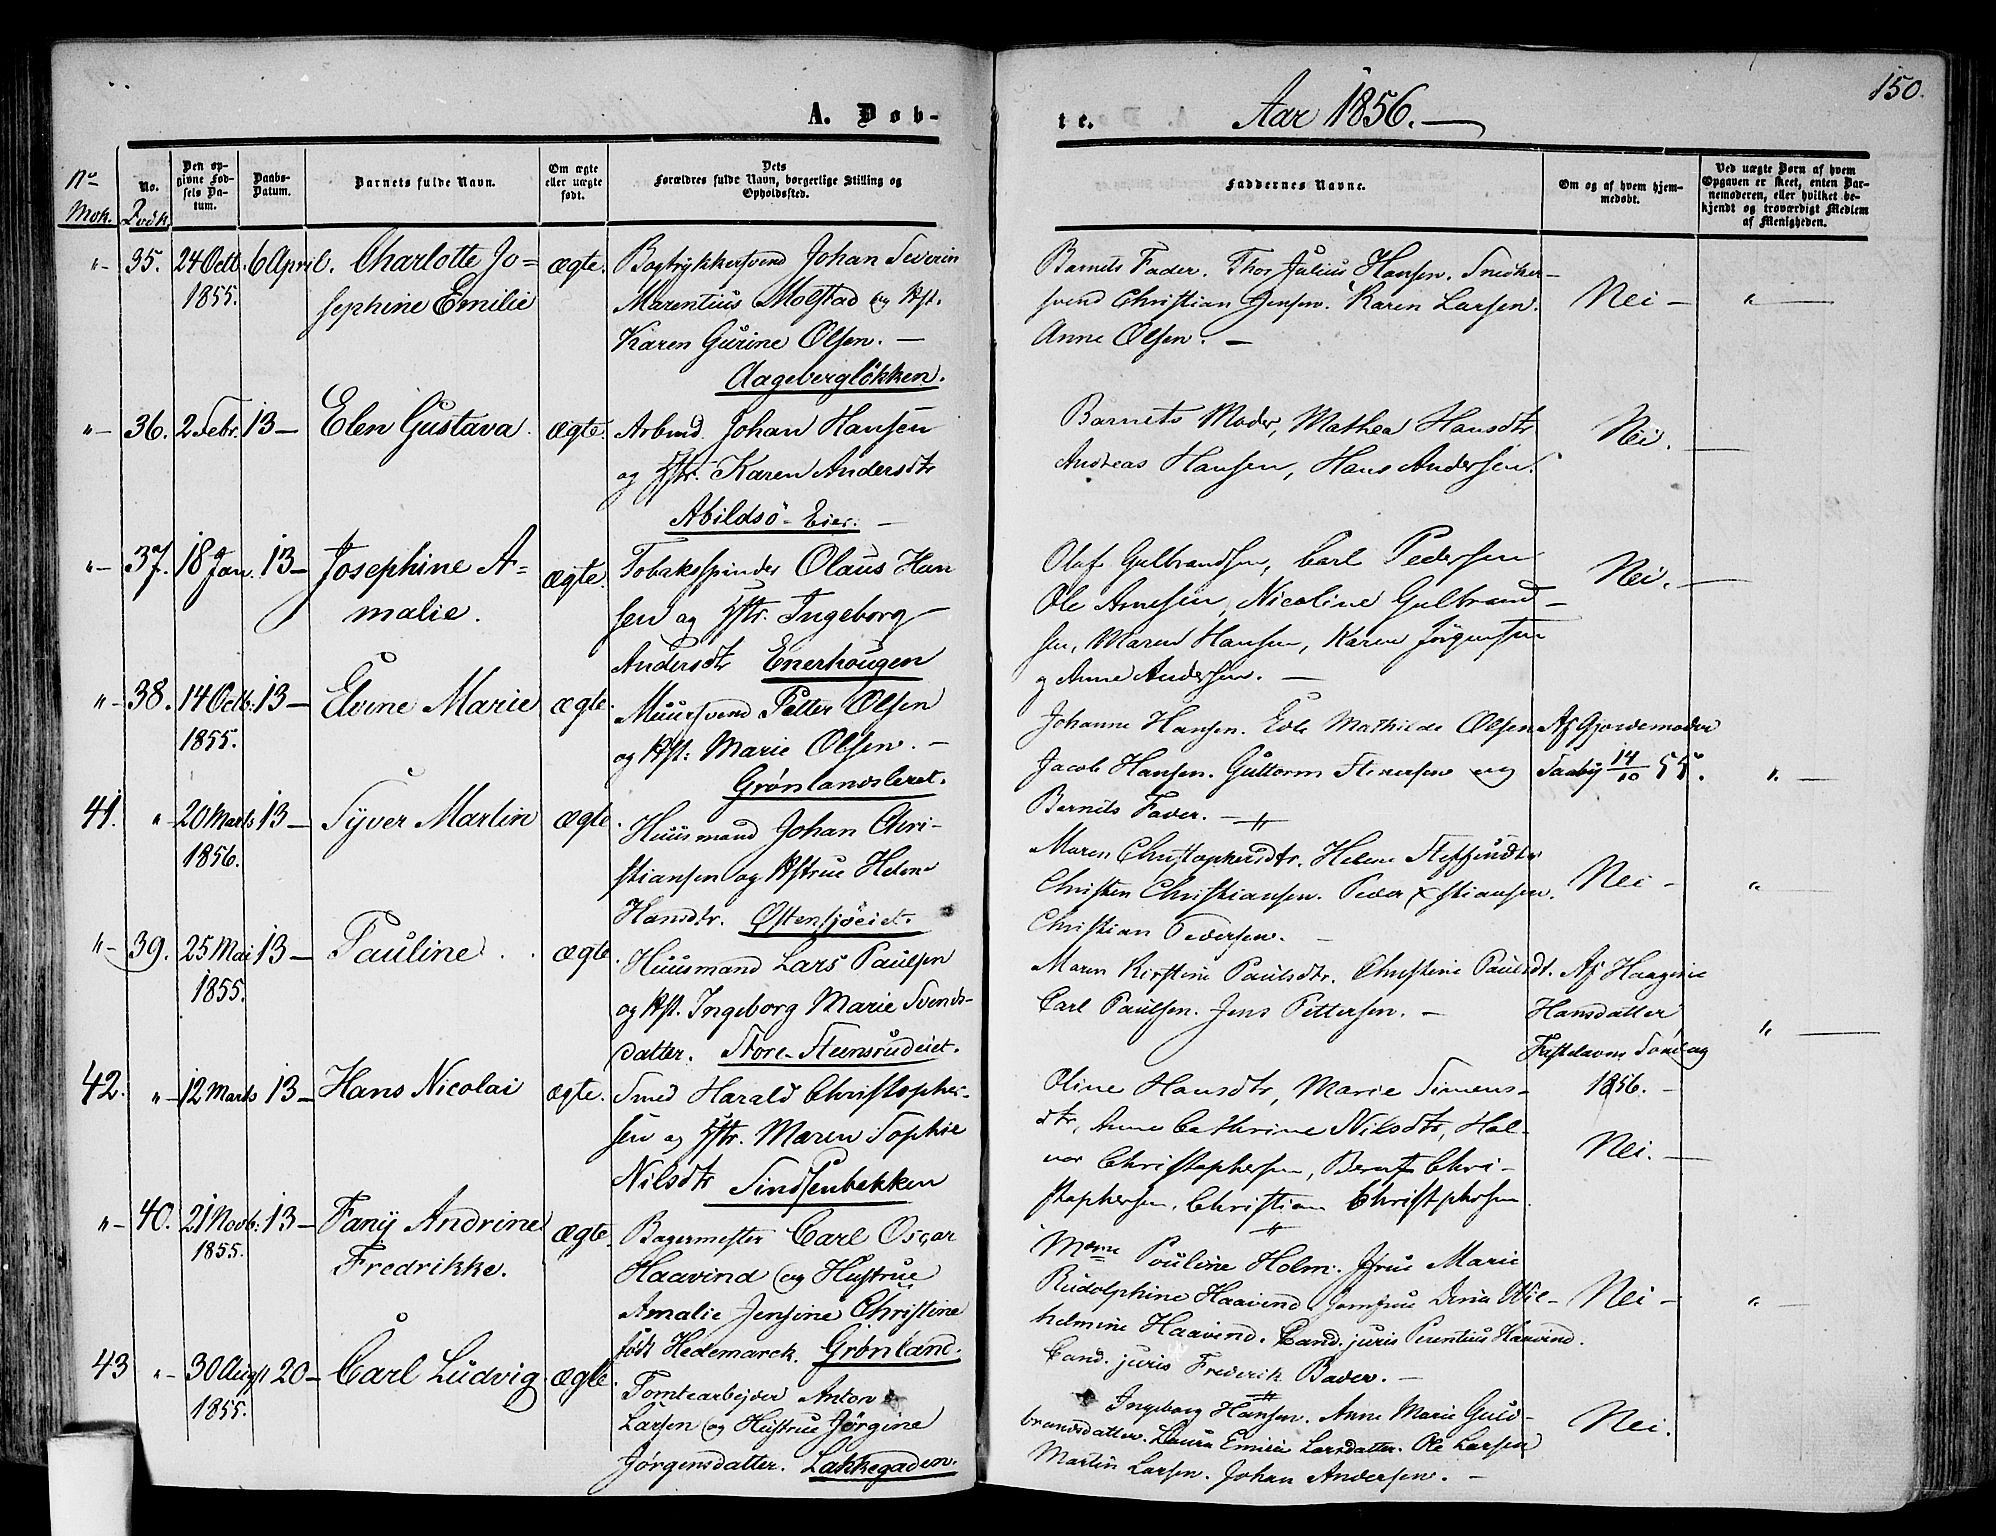 150.
A. Døb-
te.
Aar 1856.
No
Msk.
No.
Qvdk
Den op-
givne Fød-
sels Da-
tum.
Daabs-
Datum.
Barnets fulde Navn.
Om ægte
eller uægte
født.
Dets
Forældres fulde Navn, borgerlige Stilling og
Opholdssted.
Faddernes Navne.
Om og af hvem hjem-
medøbt.
Ved uægte Børn af hvem
Opgaven er skeet, enten Bar-
nemoderen, eller hvilket be-
kjendt og troværdigt Medlem
af Menigheden.
"- 35. 24 Octb. 6 April. Charlotte Jo= ægte.
1855. sephine Emilie
Bogtrykkersvend Johan Severin
Marentius Molstad og Hst.
Karen Gurine Olsen. —
Aagebergløkken.
Barnets Fader. Thor Julius Hansen. Snedker-
svend Christian Jensen. Karen Larsen.
Anne Olsen. —
Nei — "—
"- 36. 2 Febr. 13 — Elen Gustava. ægte.
Arbmd. Johan Hansen
og Hstr. Karen Andersdtr
Abildsö-Eier. —
Barnets Moder, Mathea Hansdtr
Andreas Hansen, Hans Andersen.
Nei. —
"- 37. 18 Jan. 13 — Josephine A- ægte.
malie.
Tobaksspinder Olaus Han
sen og Hstr. Ingeborg
Andersdtr Enerhougen
Olaf Gulbrandsen, Carl Pedersen
Ole Arnesen, Nicoline Gulbrand-
sen, Maren Hansen, Karen Jörgensen
og Anne Andersen. —
Nei. —
"- 38. 14 Octb. 13 — Elvine Marie ægte.
1855.
Muursvend Petter Olsen
og Hst. Marie Olsen. —
Grønlandsleret.
Johanne Hansen. Edle Mathilde Olsen
Jacob Hansen. Guttorm Stenersen og
Barnets Fader. —
Af Gjordemoder
Taaby 14/10 55. "—
41. " 20 Marts 13 — Syver Martin ægte.
1856.
Huusmand Johan Chri-
stiansen og Hstrue Helene
Hansdtr. Østensjøeiet.
Maren Christophersdtr. Helene Steffensdtr
Christen Christiansen. Peder Xstiansen.
Christian Pedersen. —
Nei — "—
"- 39. 25 Mai 13 — Pauline ægte.
1855.
Huusmand Lars Paulsen
og Hst. Ingeborg Marie Svends-
datter. Store-Steensrudeiet.
Maren Kirstine Paulsdtr. Christine Paulsdt.
Carl Paulsen. Jens Pettersen. —
Af Haagine
Hansdatter
Fastelavns Söndag
1856. —
"—
42. "- 12 Marts 13 — Hans Nicolai ægte.
Smed Harald Christopher-
sen og Hstr. Maren Sophie
Nilsdtr Sindsenbakken
Oline Hansdtr, Marie Simens-
dtr, Anne Cathrine Nilsdtr, Hal-
vor Christophersen, Bernt Chri-
stophersen, Christian Christophersen
Nei. —
"- 40. 21 Novb. 13 — Fany Andrine ægte.
1855. Fredrikke.
Bagermester Carl Oscar
Haavind og Hustrue
Amalie Jensine Christine
født Hedemarck. Grønland.
Mdme Pouline Holm. Fru Marie
Rudolphine Haavind. Jomfrue Wil-
helmine Haavind. Cand. juris Haavind.
Cand. juris Frederik Bader. —
Nei — "—
43 "- 30 August 20 — Carl Ludvig ægte.
1855.
Tomtearbejder Anton
Larsen og Hustrue Jørgine
Jørgensdatter. Lakkegaden.
Ingeborg Hansen. Anne Marie Guld-
brandsdatter. Laura Emilie Larsdatter. Ole Larsen
Martin Larsen. Johan Andersen. —
Nei.